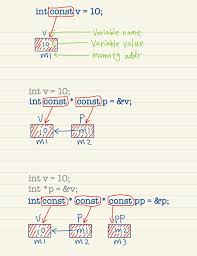 int const v = 10;
V
Variable name
10
Variable value
m1
Memory addr
int v = 10;
int const * const p = &v;
V P
10 m1
m1 m2
int v = 10;
int *p = &v;
int const * const * const pp = &p;
V P PP
10 m1 m2
m1 m2 m3